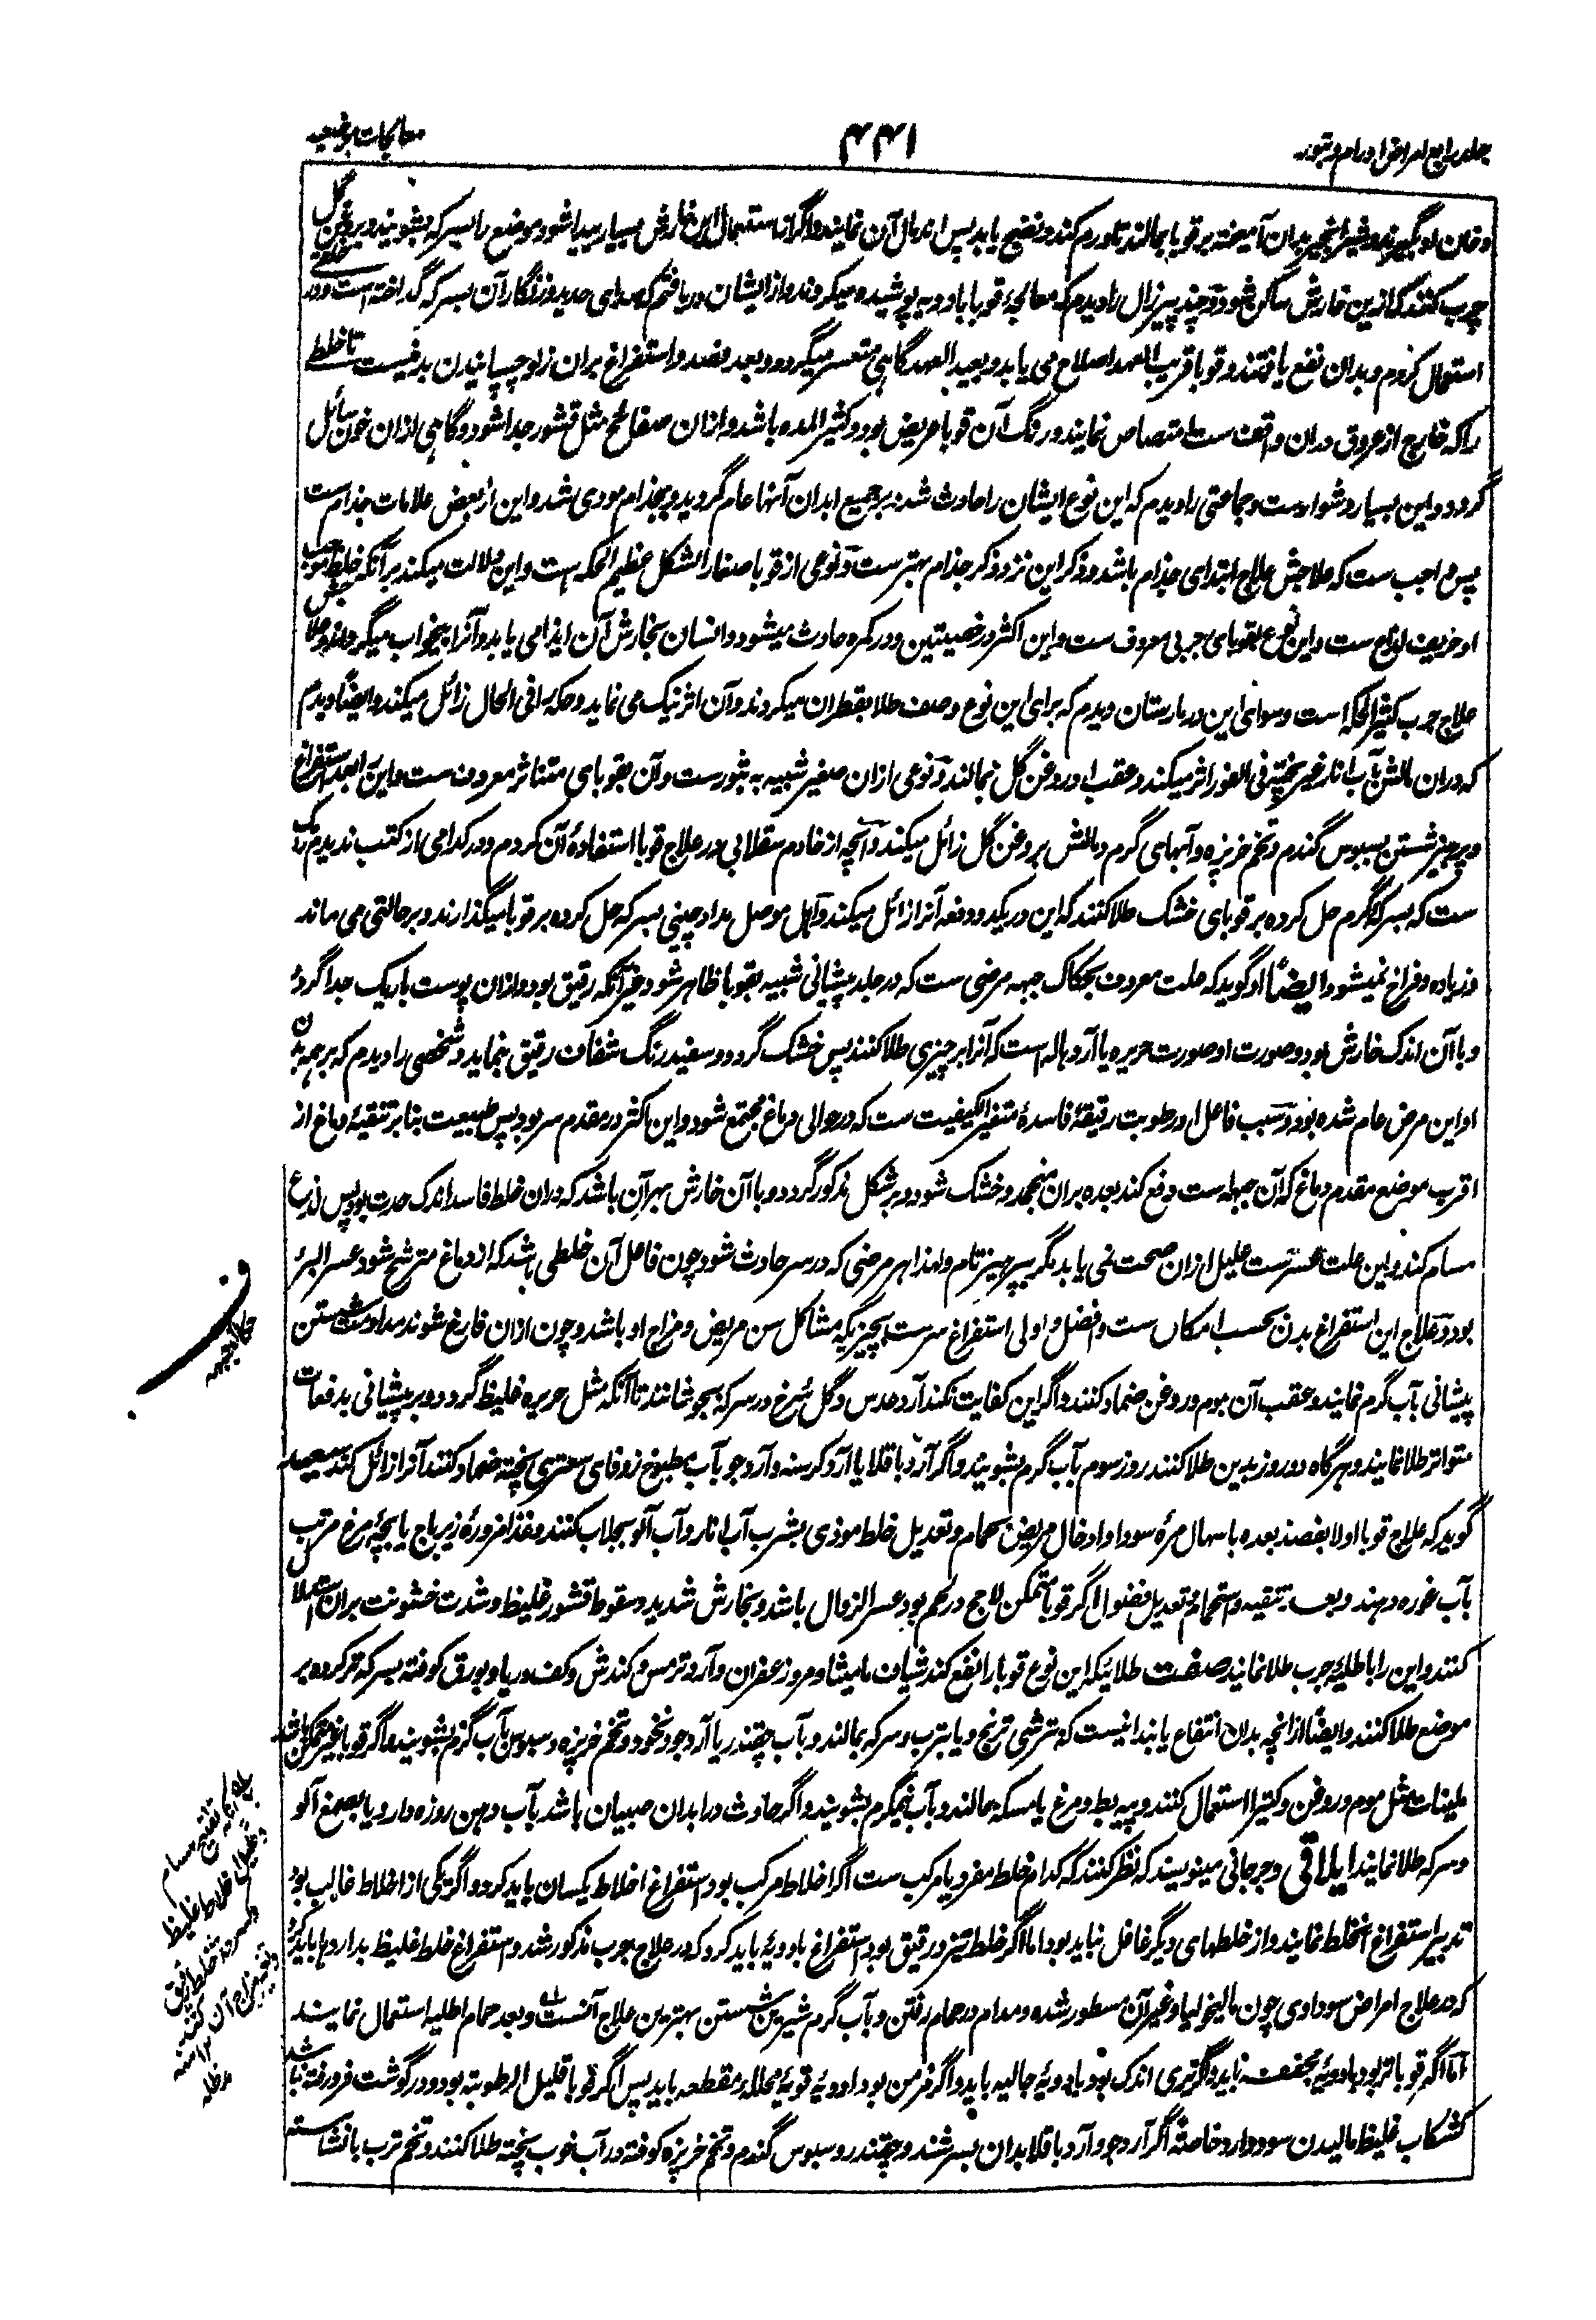 جلد رابع امراض اورام و بثور
۴۴۱
معالجات قوبا
دخان او بگیرند و شیر انجیر بدان آمیخته بر قوبا بمالند تا ورم کند و نضج یابد پس اندمال آن نمایند و اگر از استعمال این خارش بسیار پیدا شود موضع را بسرکه بشویند و بروغن گل
چرب کنند که ازین خارش ساکن شود و چند پیر زال را دیدم که معالجهٔ قوبا بادویه پوشیده میکردند و از ایشان دریافتم که سوای حدید و زنگار آن بسرکه گداخته است و در
استعمال کردم و بدان نفع یافتند و قوبا قریب العهد اصلاح می یابد و بعید العهد گاهی متعسر میگردد و بعد فصد و استفراغ بران زلو چسپانیدن بد نیست تا خلط
را که خارج از عروق دران واقف ست امتصاص نمایند و رنگ آن قوبا عریض بود و کثیر المده باشد و ازان صفائح مثل قشور جدا شود و گاهی ازان خون سائل
گردد و این بسیار دشوار ست و جماعتی را دیدم که این نوع ایشان را حادث شد و بر جمیع ابدان آنها عام گردید و بجذام مودی شد و این از بعض علامات جذام ست
پس واجب ست که علاجش علاج ابتدای جذام باشد و ذکر این نزد ذکر جذام بهتر ست و نوعی از قوبا صغار الشکل عظیم الحکه است و این دلالت میکند بر آنکه خلط موجب
او حریف لذاع ست و این نوع بقوبای جربی معروف ست و این اکثر در خصیتین و در کمره حادث میشود و انسان بخارش آن ایذا می یابد و آنرا بیخواب میگرداند و علاجش
علاج جرب کثیر الحکه است و سوای این در بیمارستان دیدم که برای این نوع وصف طلا بقطران میکردند و آن اثر نیک می نماید و حکه را فی الحال زائل میکند و ایضاً دیدم
که دران مالش بآب انار غیر پخته فی الفور اثر میکند و عقب او روغن گل بمالند و نوعی ازان صغیر شبیه به بثور ست و آن بقوبای متناثر معروف ست و این را بعد استفراغ
و پرهیز شستن بسبوس گندم و تخم خرپزه و آبهای گرم و مالش بروغن گل زائل میکند و آنچه از خادم سقلابی در علاج قوبا استفادهٔ آن کردم و در کدامی از کتب ندیدم
ست که بسرکه گرم حل کرده بر قوبای خشک طلا کنند که این در یکدو دفعه آنرا زائل میکند و اهل موصل مداد چینی بسرکه حل کرده بر قوبا میگذارند و بر حالتی می ماند
و زیاده و فراخ نمیشود ایضاً او گوید که علت معروف بحکاک جبهه مرضی ست که در جلد پیشانی شبیه بقوبا ظاهر شود غیر آنکه رقیق بود و ازان پوست باریک جدا گردد
و با آن اندک خارش بود و صورت او صورت حریره یا آرد هاله است که آنرا بر چیزی طلا کنند پس خشک گردد و سفید رنگ شفاف رقیق بنماید و شخصی را دیدم که بر همه بدن
او این مرض عام شده بود و سبب فاعل او رطوبت رقیقهٔ فاسدهٔ متغیر الکیفیت ست که در حوالی دماغ مجتمع شود و این اکثر در مقدم سر بود پس طبیعت بنا بر تنقیهٔ دماغ از
اقرب موضع مقدم دماغ که آن جبهه ست دفع کند بعده بران منجمد و خشک شود و بر شکل مذکور گردد و با آن خارش بهر آن باشد که دران خلط فاسد اندک حدت بود پس لذع
مسام کند و این علت عسر ست علیل ازان صحت نمی یابد مگر بپرهیز تام و لهذا هر مرضی که در سر حادث شود چون فاعل آن خلطی باشد که از دماغ مترشح شود عسر البرء
بود و علاج این استفراغ بدن بحسب امکان ست و افضل و اولی استفراغ سر ست بچیزیکه مشاکل سن مریض و مزاج او باشد و چون ازان فارغ شوند مداومت شستن
پیشانی بآب گرم نمایند و عقب آن بموم و روغن ضماد کنند و اگر این کفایت نکند آرد عدس و گل سرخ در سرکه بجوشانند تا آنکه مثل حریره غلیظ گردد و بر پیشانی بدفعات
متواتر طلا نمایند و هر گاه دو روز بدین طلا کنند روز سوم بآب گرم بشویند و اگر آرد باقلا یا آرد کرسنه و آرد جو بآب مطبوخ زوفای سعتری پخته ضماد کنند آنرا زائل کند سعید
گوید که علاج قوبا اولا بفصد بعده باسهال مرهٔ سودا و ادخال مریض بحمام و تعدیل خلط موذی بشرب آب انار و آب آلو بجلاب کنند و غذا مزورهٔ زیرباج یا بچهٔ مرغ مرتب
بآب غوره دهند و بعد تنقیه و استحمام و تعدیل فضول اگر قوبا متمکن لاحج در لحم بود عسر الزوال باشد و بخارش شدید و سقوط قشور غلیظ و شدت خشونت بران استدلال
کنند و این را باطلیهٔ جرب طلا نمایند صفت طلائیکه این نوع قوبا را نفع کند شیاف مامیثا و مر و زعفران و آرد ترمس و کندش و کف دریا و بورق کوفته بسرکه تر کرده بر
موضع طلا کنند و ایضاً از انچه بدان انتفاع یابند اینست که بترشی ترنج و یا بترب و سرکه بمالند و بآب چقندر یا آرد جو و نخود و تخم خرپزه و سبوس بآب گرم بشویند و اگر قوبا غیر متمکن باشد
ملینات مثل موم و روغن و کتیرا استعمال کنند و پیه بط و مرغ یا مسکه بمالند و بآب نیمگرم بشویند و اگر حادث در ابدان صبیان باشد بآب دهن روزه دار و یا بصمغ آلو
و سرکه طلا نمایند ایلاقی و جرجانی مینویسند که نظر کنند که کدام خلط مفرد یا مرکب ست اگر اخلاط مرکب بود استفراغ اخلاط یکسان باید کرد و اگر یکی از اخلاط غالب بود
تدبیر استفراغ آنخلط نمایند و از خلطهای دیگر غافل نباید بود اما اگر خلط تیز و رقیق بود استفراغ بادویه باید کرد که در علاج جرب مذکور شد و استفراغ خلط غلیظ بداروها باید کرد
که در علاج امراض سوداوی چون مالیخولیا و غیر آن مسطور شده و مدام در حمام رفتن و بآب گرم شیرین شستن بهترین علاج آنست و بعد حمام اطلیه استعمال نمایند
اما اگر قوبا تر بود بادویهٔ مجففه باید و اگر تری اندک بود بادویهٔ جالیه باید و اگر مزمن بود ادویهٔ قویهٔ محلله و مقطعه باید پس اگر قوبا قلیل الرطوبة بود و در گوشت فرو رفته نباشد
کشکاب غلیظ مالیدن سود دارد خاصةً اگر آرد جو و آرد باقلا بدان بسرشند و چقندر و سبوس گندم و تخم خرپزه کوفته در آب خوب پخته طلا کنند و تخم ترب با نشاسته
حکاک جبهه